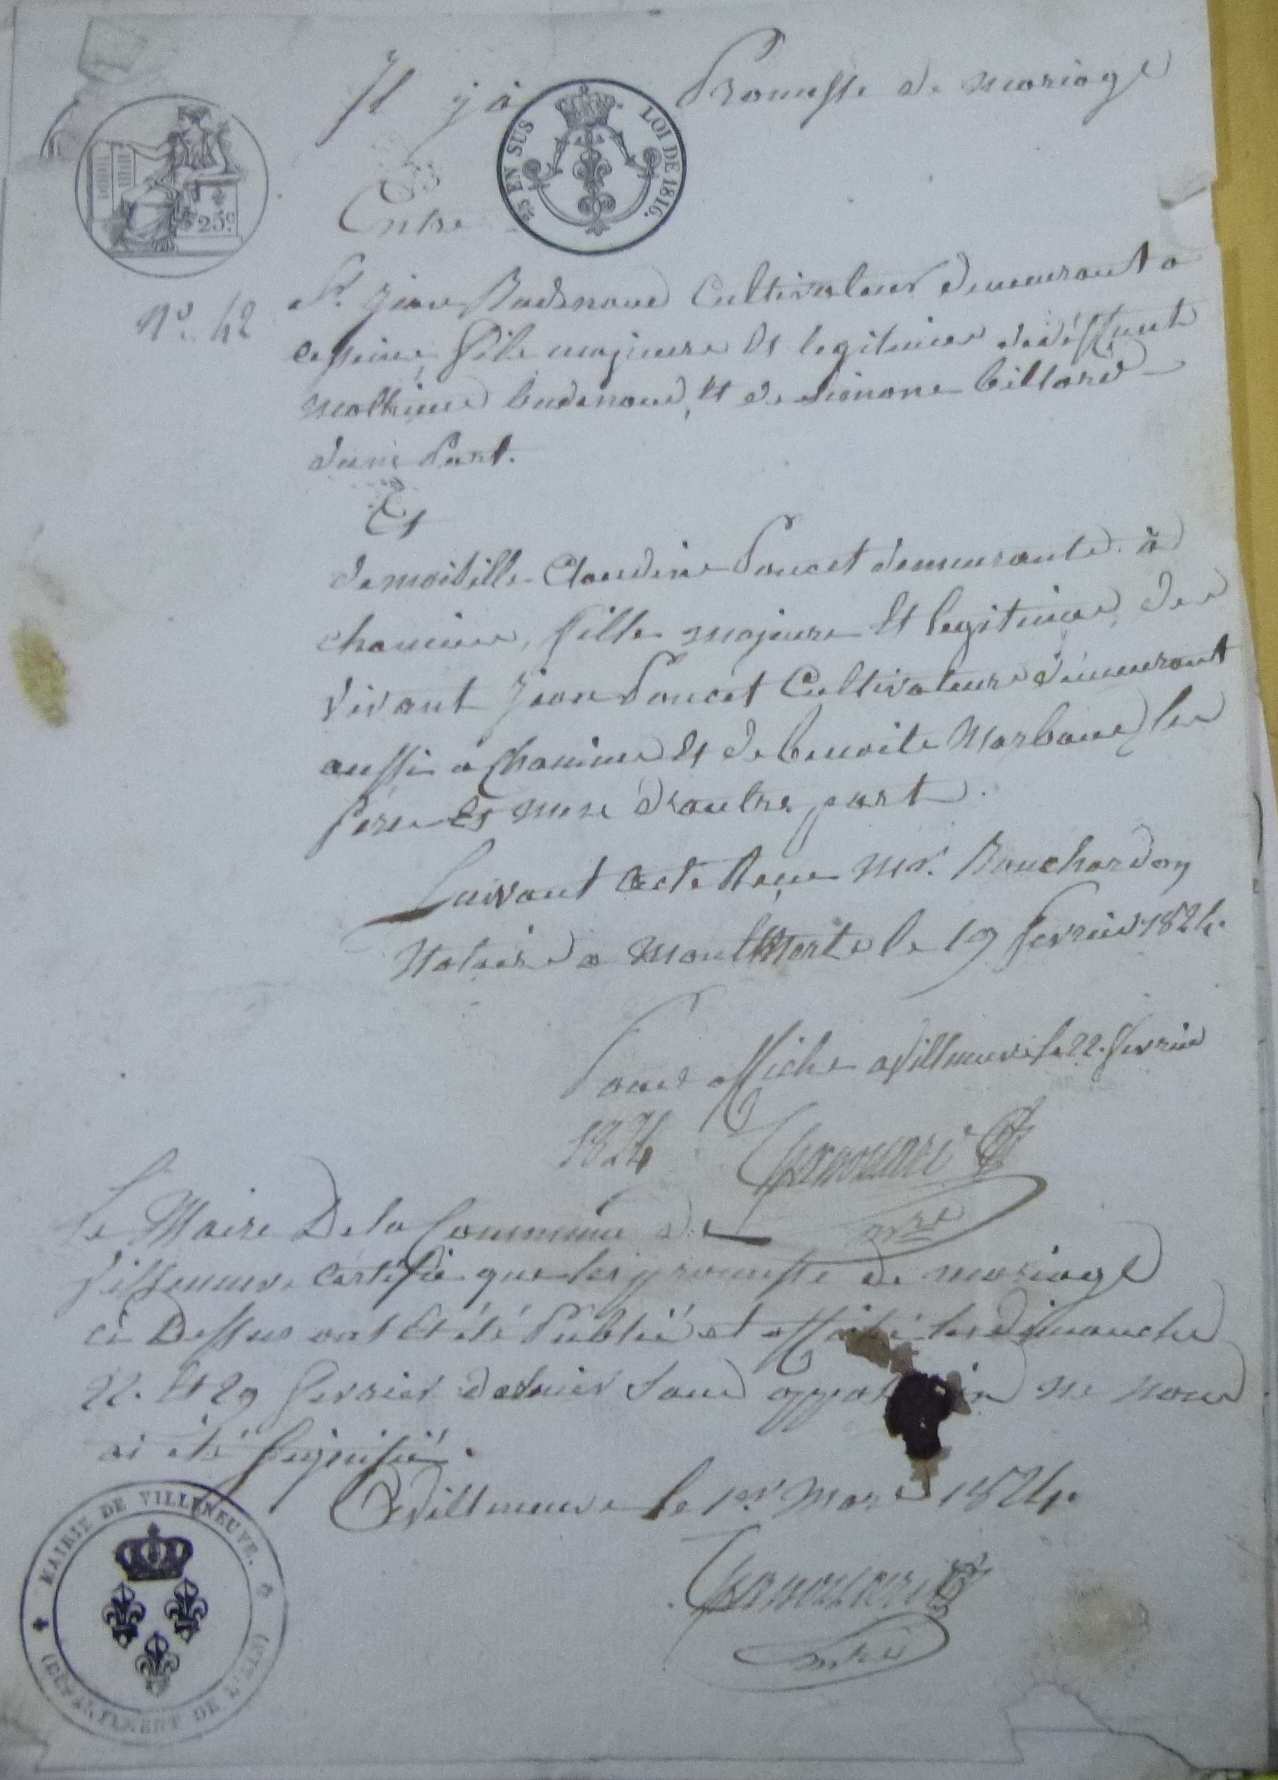 Il y à Promesse de mariage
25 EN SUS LOI DE 1816.
25c
Entre
N° 42
Sr. jean Cultivateur demeurant a
fils majeure Et legitime de deffunt
Et de Simone billard
dune Part.
Et
demoiselle Claudine Poncet demeurante à
chanine, fille majeure Et legitime de
vivant Jean Poncet Cultivateure demeurant
aussi a Chanine Et de benoite les
Pere Et mere d'autre part.
Suivant acte Reçue Mr. Bouchardon
Notaire a le 19 fevrier 1824.
Pour affiche a villeneuve le 22. fevrier
1824
mre
Le Maire De la Commune de
Villeneuve Certifie que les promesse de mariage
ci Dessus ont Et été Publié et affiché les dimanche
22. Et 29 fevrier dernier Sans opposition ne nous
ai été signifié.
A Villeneuve le 1er Mars 1824.
mre
MAIRIE DE VILLENEUVE.
(DÉPARTEMENT DE L'AIN)